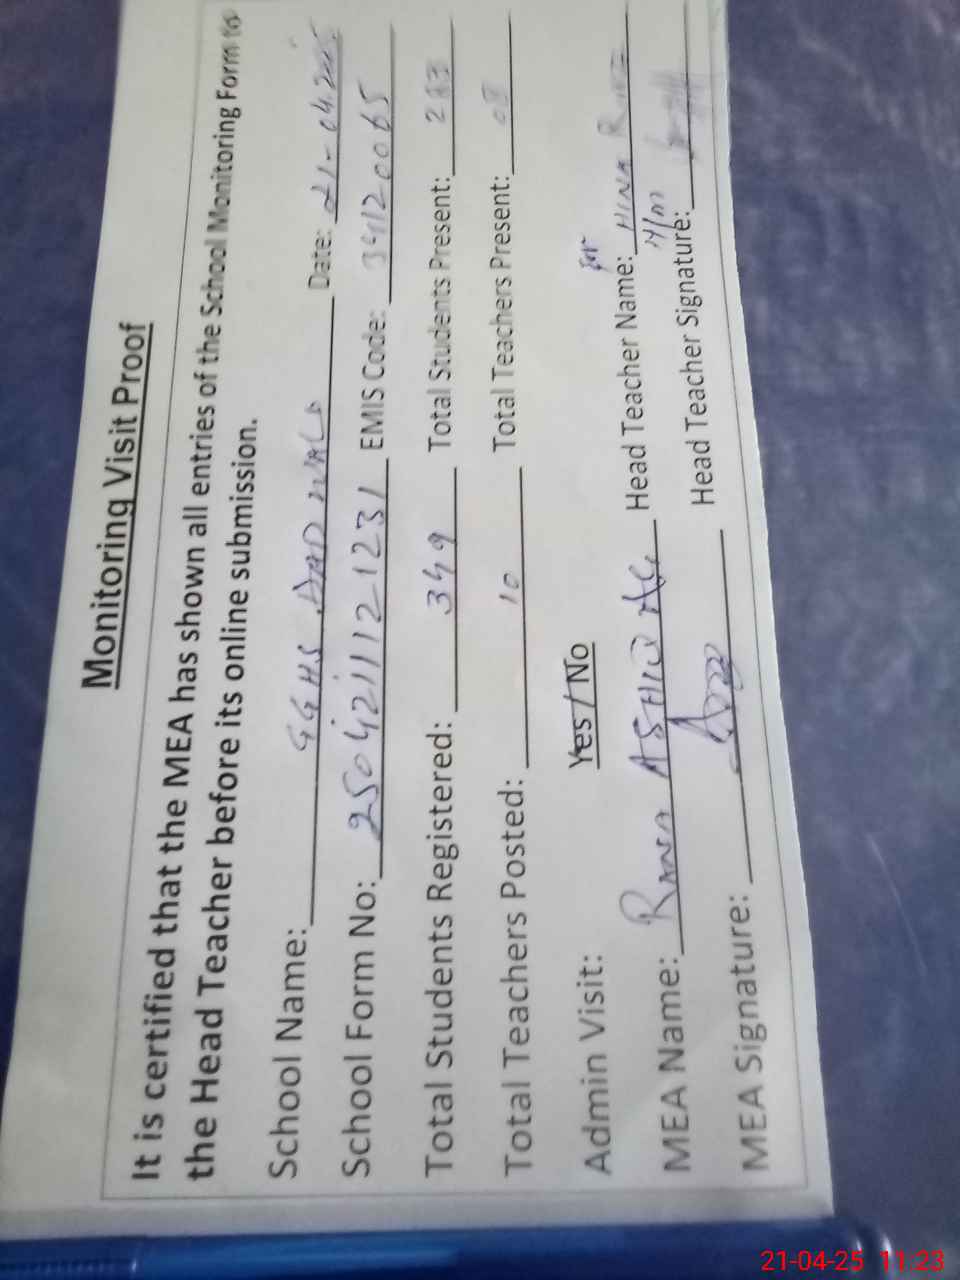 Monitoring Visit Proof
It is certified that the MEA has shown all entries of the School Monitoring Form to
the Head Teacher before its online submission.
School Name: GGHS DAD WALI Date: 21-04.2025
School Form No: 250421112123 1 EMIS Code: 34120065
Total Students Registered: 349 Total Students Present:
Total Teachers Posted: 10 Total Teachers Present: 08
Admin Visit: Yes / No
MEA Name: Rana Head Teacher Name: HINA
MEA Signature: Head Teacher Signature:
21-04-25 11:23